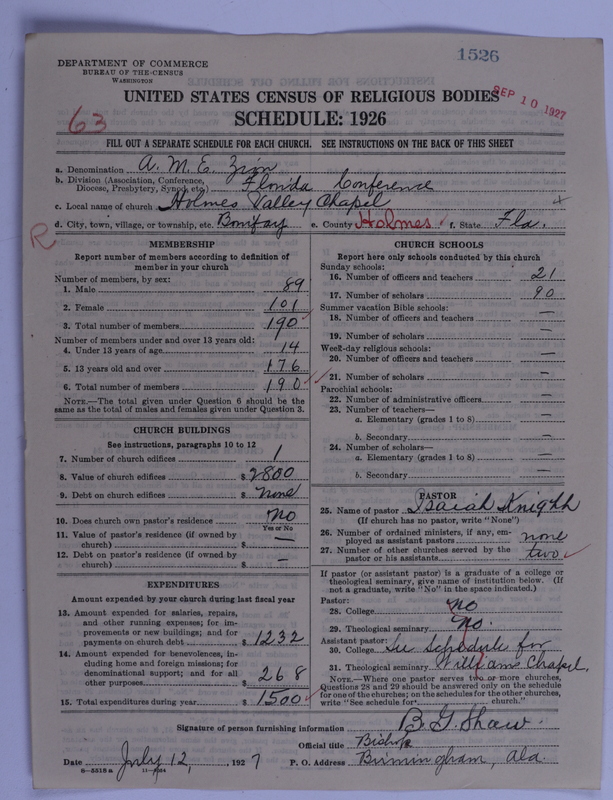 1526
DEPARTMENT OF COMMERCE
BUREAU OF THE CENSUS
WASHINGTON
SEP 10 1927
UNITED STATES CENSUS OF RELIGIOUS BODIES
63
SCHEDULE: 1926
FILL OUT A SEPARATE SCHEDULE FOR EACH CHURCH. SEE INSTRUCTIONS ON THE BACK OF THIS SHEET
a. Denomination A. M. E. Zion
b. Division (Association, Conference, Diocese, Presbytery, Synod, etc.) Florida Conference
c. Local name of church Holmes Valley Chapel
d. City, town, village, or township, etc. Bonifay e. County Holmes f. State Fla.
R
MEMBERSHIP
Report number of members according to definition of
member in your church
Number of members, by sex:
1. Male 89
2. Female 101
3. Total number of members 190
Number of members under and over 13 years old:
4. Under 13 years of age 14
5. 13 years old and over 176
6. Total number of members 190
NOTE.—The total given under Question 6 should be
same as the total of males and females given under Question 3.
CHURCH BUILDINGS
See instructions, paragraphs 10 to 12
7. Number of church edifices 1
8. Value of church edifices $ 2800
9. Debt on church edifices $ none
10. Does church own pastor's residence No
Yes or No
11. Value of pastor's residence (if owned by
church) $ —
12. Debt on pastor's residence (if owned by
church) $ —
EXPENDITURES
Amount expended by your church during last fiscal year
13. Amount expended for salaries, repairs,
and other running expenses; for im-
provements or new buildings; and for
payments on church debt $ 1232
14. Amount expended for benevolences, in-
cluding home and foreign missions; for
denominational support; and for all
other purposes $ 268
15. Total expenditures during year $ 1500
CHURCH SCHOOLS
Report here only schools conducted by this church
Sunday schools:
16. Number of officers and teachers 21
17. Number of scholars 90
Summer vacation Bible schools:
18. Number of officers and teachers —
19. Number of scholars —
Week-day religious schools:
20. Number of officers and teachers —
21. Number of scholars —
Parochial schools:
22. Number of administrative officers —
23. Number of teachers—
a. Elementary (grades 1 to 8) —
b. Secondary —
24. Number of scholars—
a. Elementary (grades 1 to 8) —
b. Secondary —
PASTOR
25. Name of pastor Isaiah Knight
(If church has no pastor, write "None")
26. Number of ordained ministers, if any, em-
ployed as assistant pastors none
27. Number of other churches served by the
pastor or his assistants two
If pastor (or assistant pastor) is a graduate of a college or
theological seminary, give name of institution below. (If
not a graduate, write "No" in the space indicated.)
Pastor:
28. College no
29. Theological seminary No.
Assistant pastor:
30. College See Schedule for
31. Theological seminary Williams Chapel,
NOTE.—Where one pastor serves two or more churches,
Questions 28 and 29 should be answered only on the schedule
for one of the churches; on the schedules for the other churches,
write "See schedule for church."
Signature of person furnishing information B. G. Shaw
Official title Bishop
Date July 12, 1927 P. O. Address Birmingham, Ala.